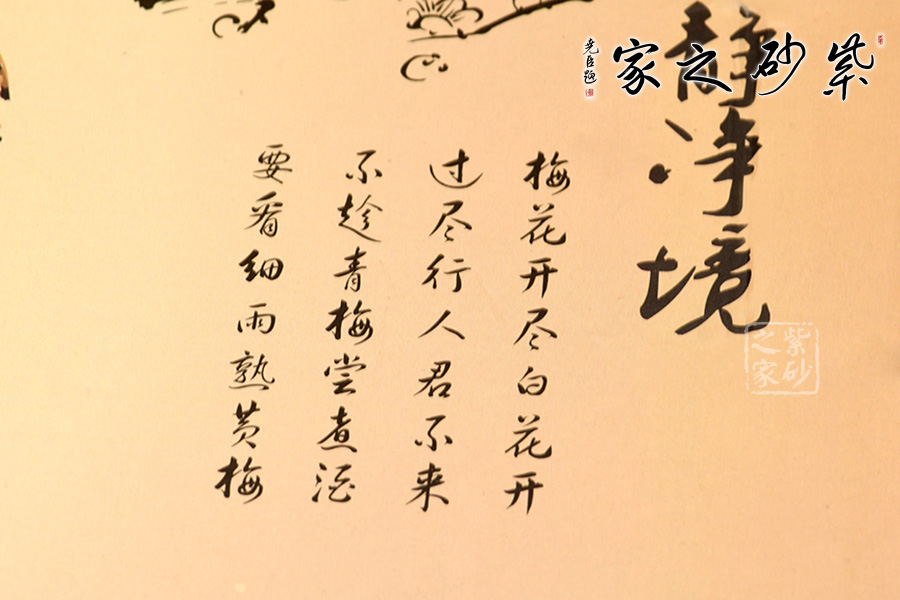 紫砂之家
尧臣题
静净境
梅花开尽白花开
过尽行人君不来
不趁青梅尝煮酒
要看细雨熟黄梅
紫砂之家